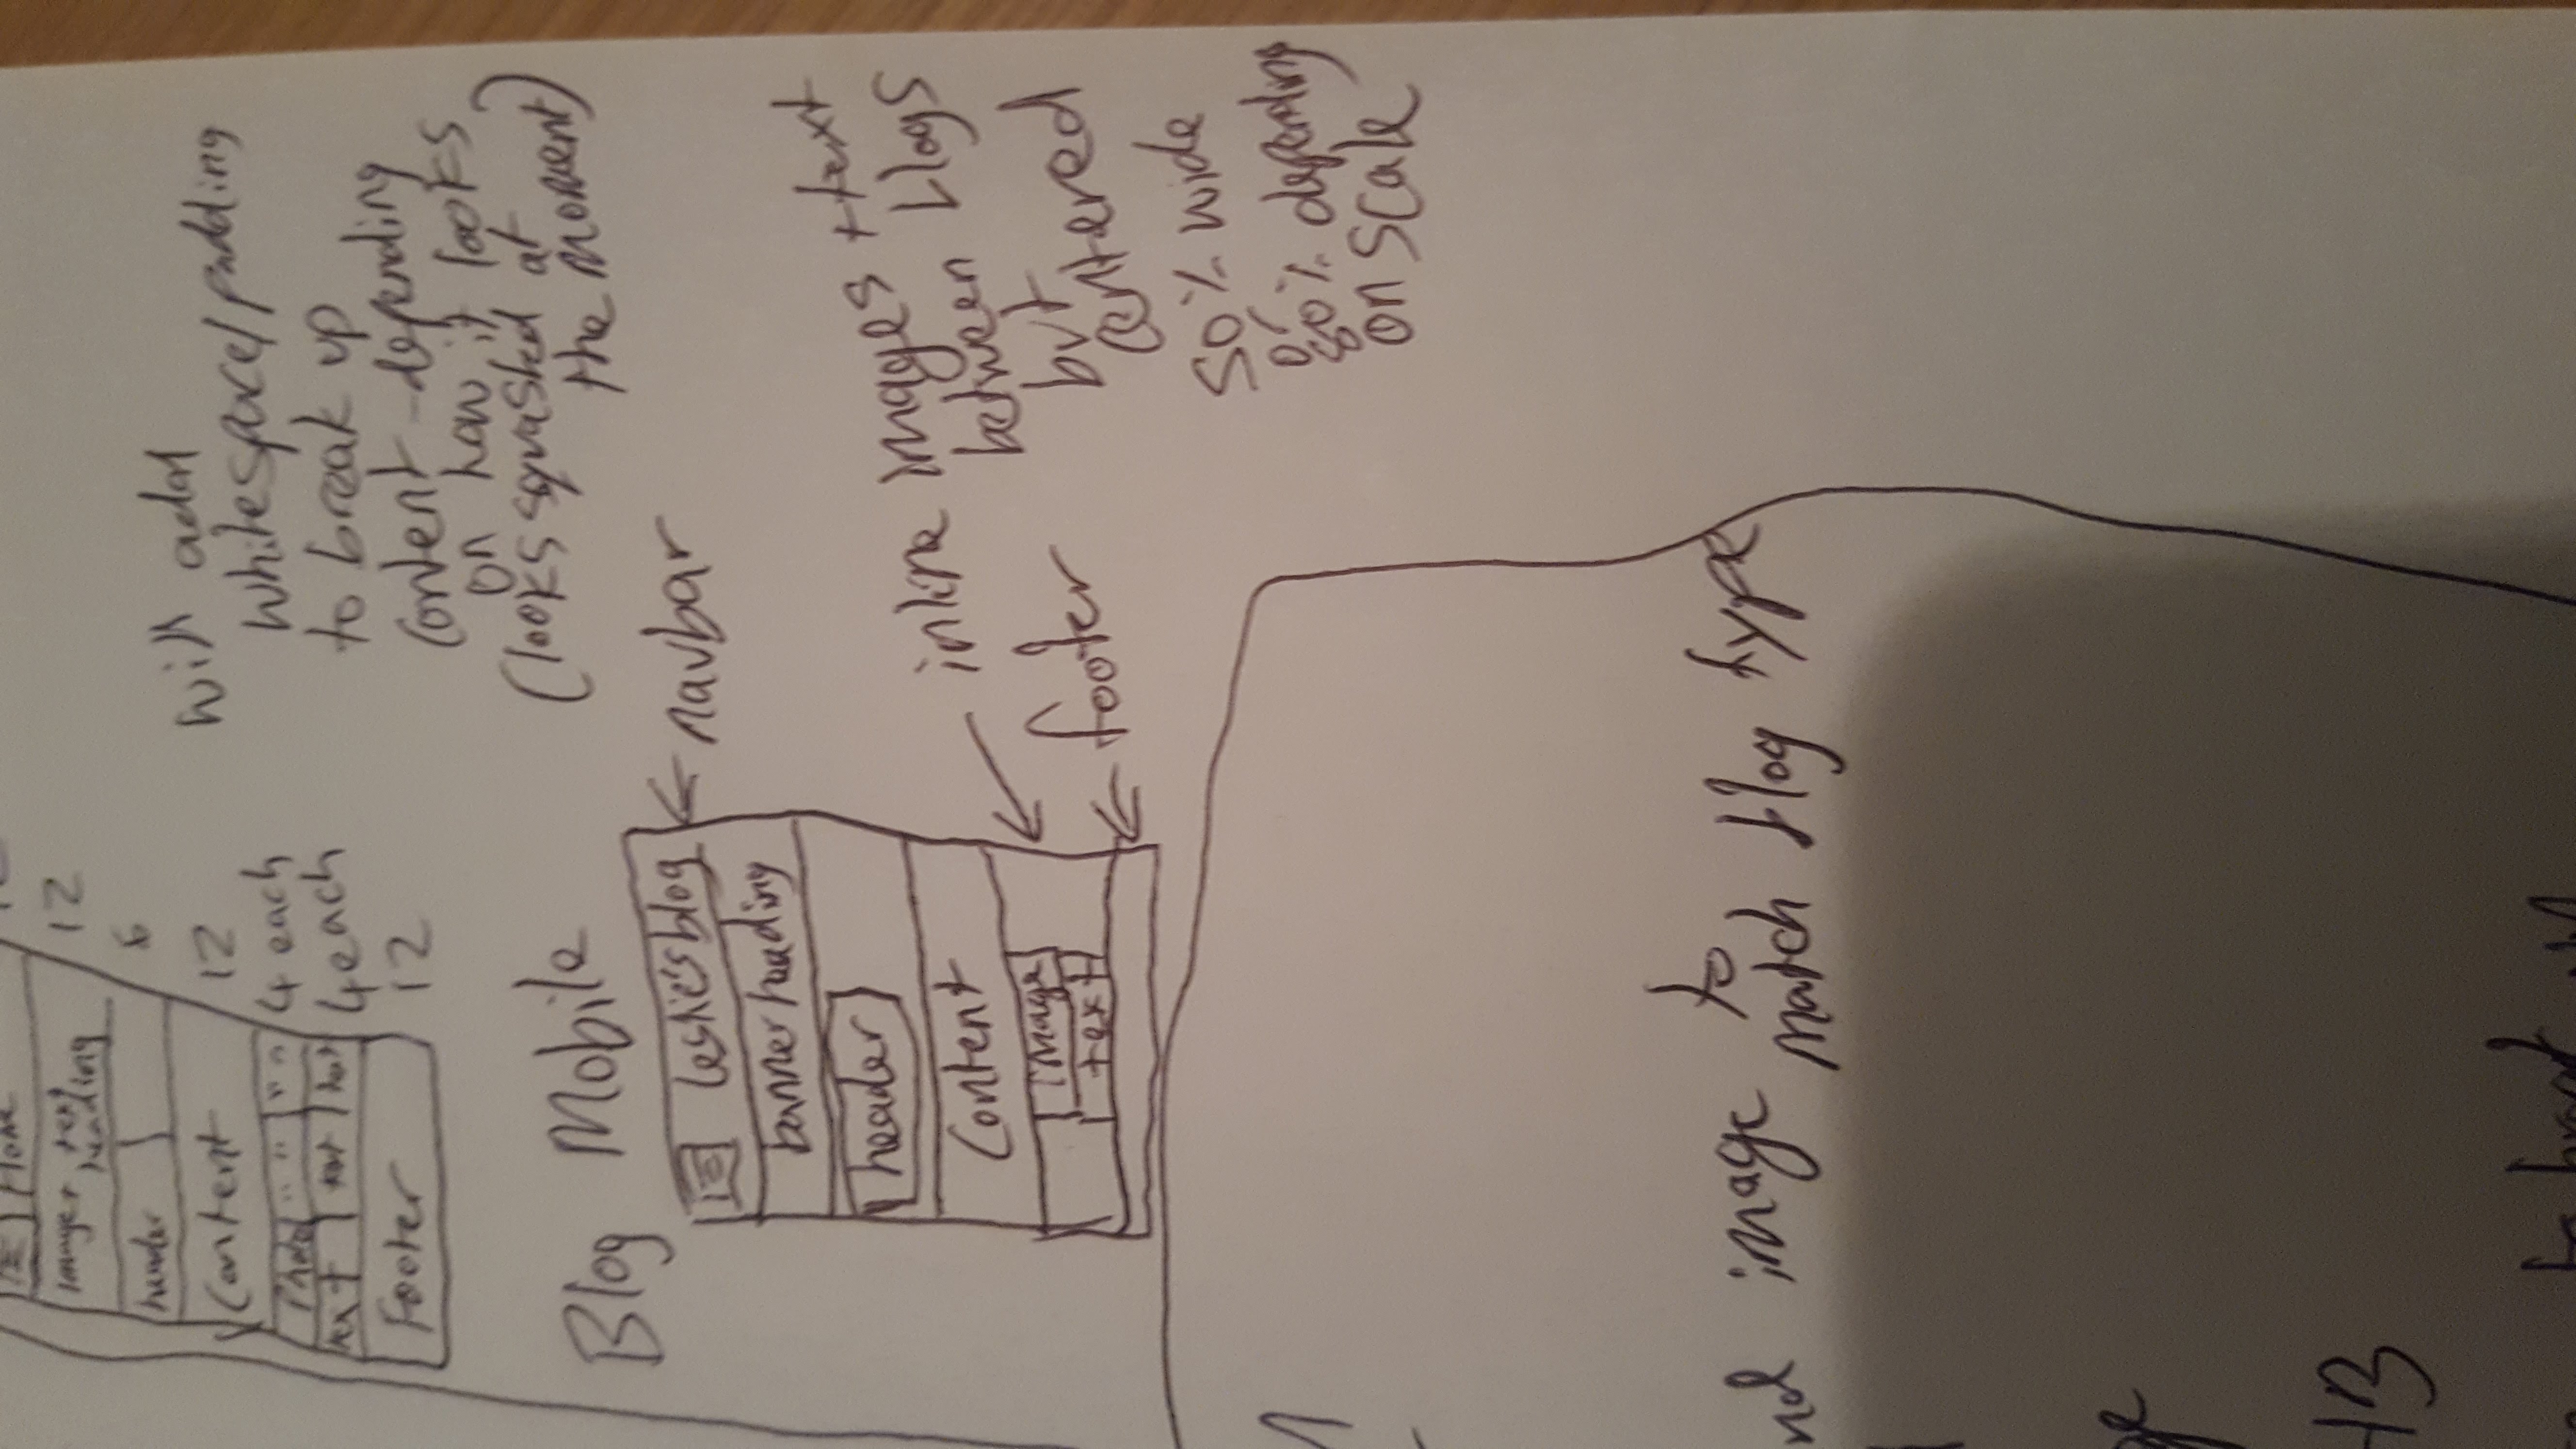 Home
12
image + text
heading
12
header
6
Content
12
Photo " " " "
4 each
text text text
4 each
Footer
12
will add
whitespace/padding
to break up
content - depending
on how it looks
(looks squashed at
the moment)
Blog Mobile
leslie's blog
navbar
banner heading
header
Content
image
text
inline images + text
between blogs
but
centered
50% wide
or
80% depending
on scale
footer
image to
match blog type
to break up